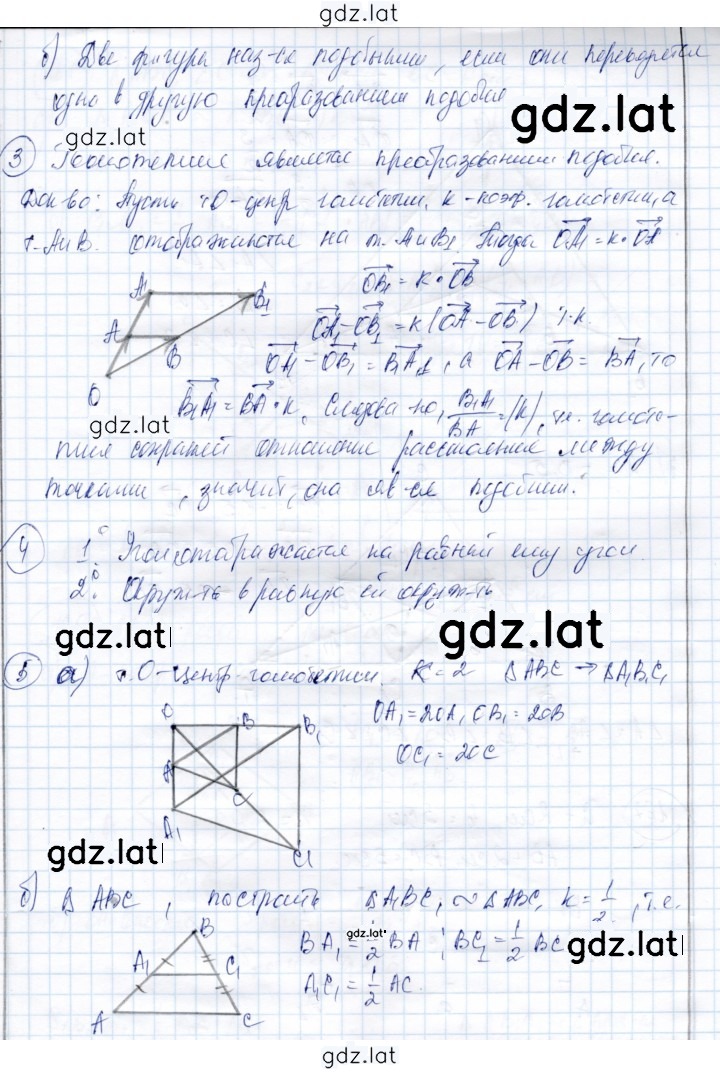 gdz.lat
б) Две фигуры наз-ся подобными, если они переводятся
одна в другую преобразованием подобия
gdz.lat
gdz.lat
3 Гомотетия является преобразованием подобия.
Док-во: Пусть т.О-центр гомотетии, к-коэф. гомотетии, а
т. А и В отображаются на т. A₁ и B₁ Тогда OA₁ = k·OA
OB₁ = k·OB
A₁ B₁ A B O
OA₁ - OB₁ = k(OA - OB) т.к.
OA₁ - OB₁ = B₁A₁, а OA - OB = BA, то
gdz.lat
B₁A₁ = BA·k, Следова-но, B₁A₁/BA = |k|, т.е. гомоте-
тия сохраняет отношение расстояния между
точками, значит, она яв-ся подобием.
4 1. Угол отображается на равный ему угол.
2. Окруж-ть в равную ей окруж-ть
gdz.lat
gdz.lat
5 а) т.О-центр гомотетии. K=2 △ABC → △A₁B₁C₁
OA₁=2OA, OB₁=2OB
OC₁=2OC
O B B₁
A C
A₁ C₁
gdz.lat
б) △ABC, построить △A₁BC₁ ∾ △ABC, k=1/2, т.е.
BA₁=1/2 BA; BC₁=1/2 BC
gdz.lat
gdz.lat
A₁C₁=1/2 AC.
B
A₁ C₁
A C
gdz.lat